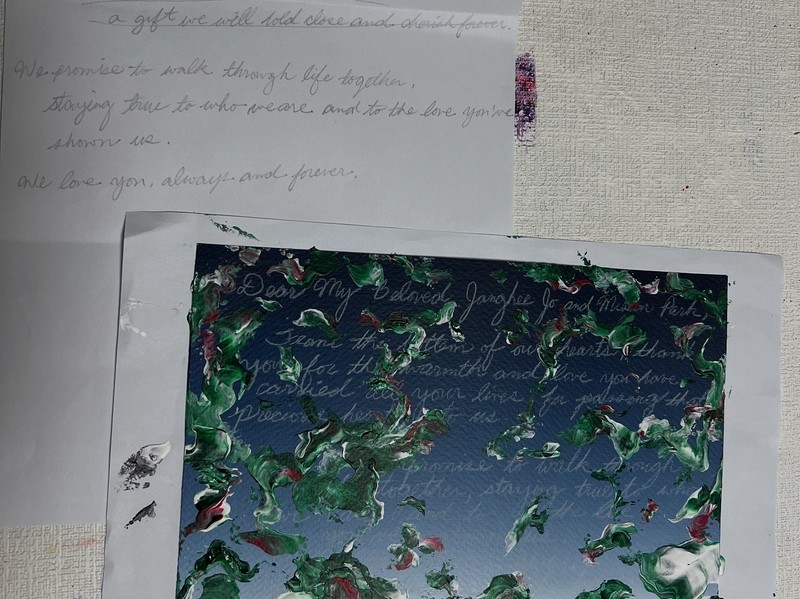 a gift we will hold close and cherish forever.
We promise to walk through life together,
staying true to who we are and to the love you've
shown us.
We love you, always and forever.
Dear My Beloved Janghee Jo and Miran Park,
From the bottom of our hearts, thank
you for the warmth and love you have
carried all your lives for passing that
precious to us
promise to walk through
together, staying true to who